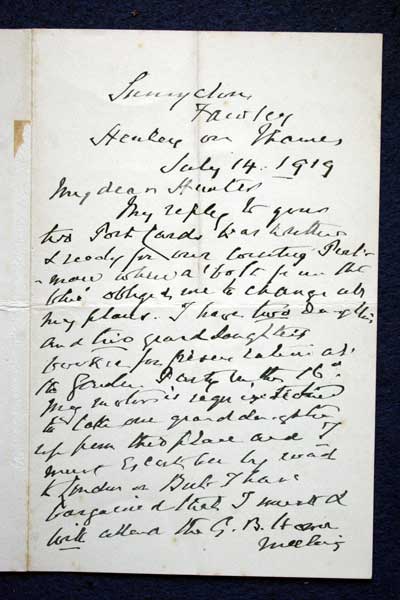 Fawley
Henley on Thames
July 14. 1919
My dear Hunter
My reply to your
two Post Cards was written
& ready for our Country Post-
man when a 'bolt from the
blue' obliged me to change all
my plans. I have two daughters
and two granddaughters
for presentation at
the Garden Party on the 16th
My motor is requisitioned
to take one granddaughter
up from this place and I
must escort her by road
to London. But I have
bargained that I must &
will attend the G. B.
meeting